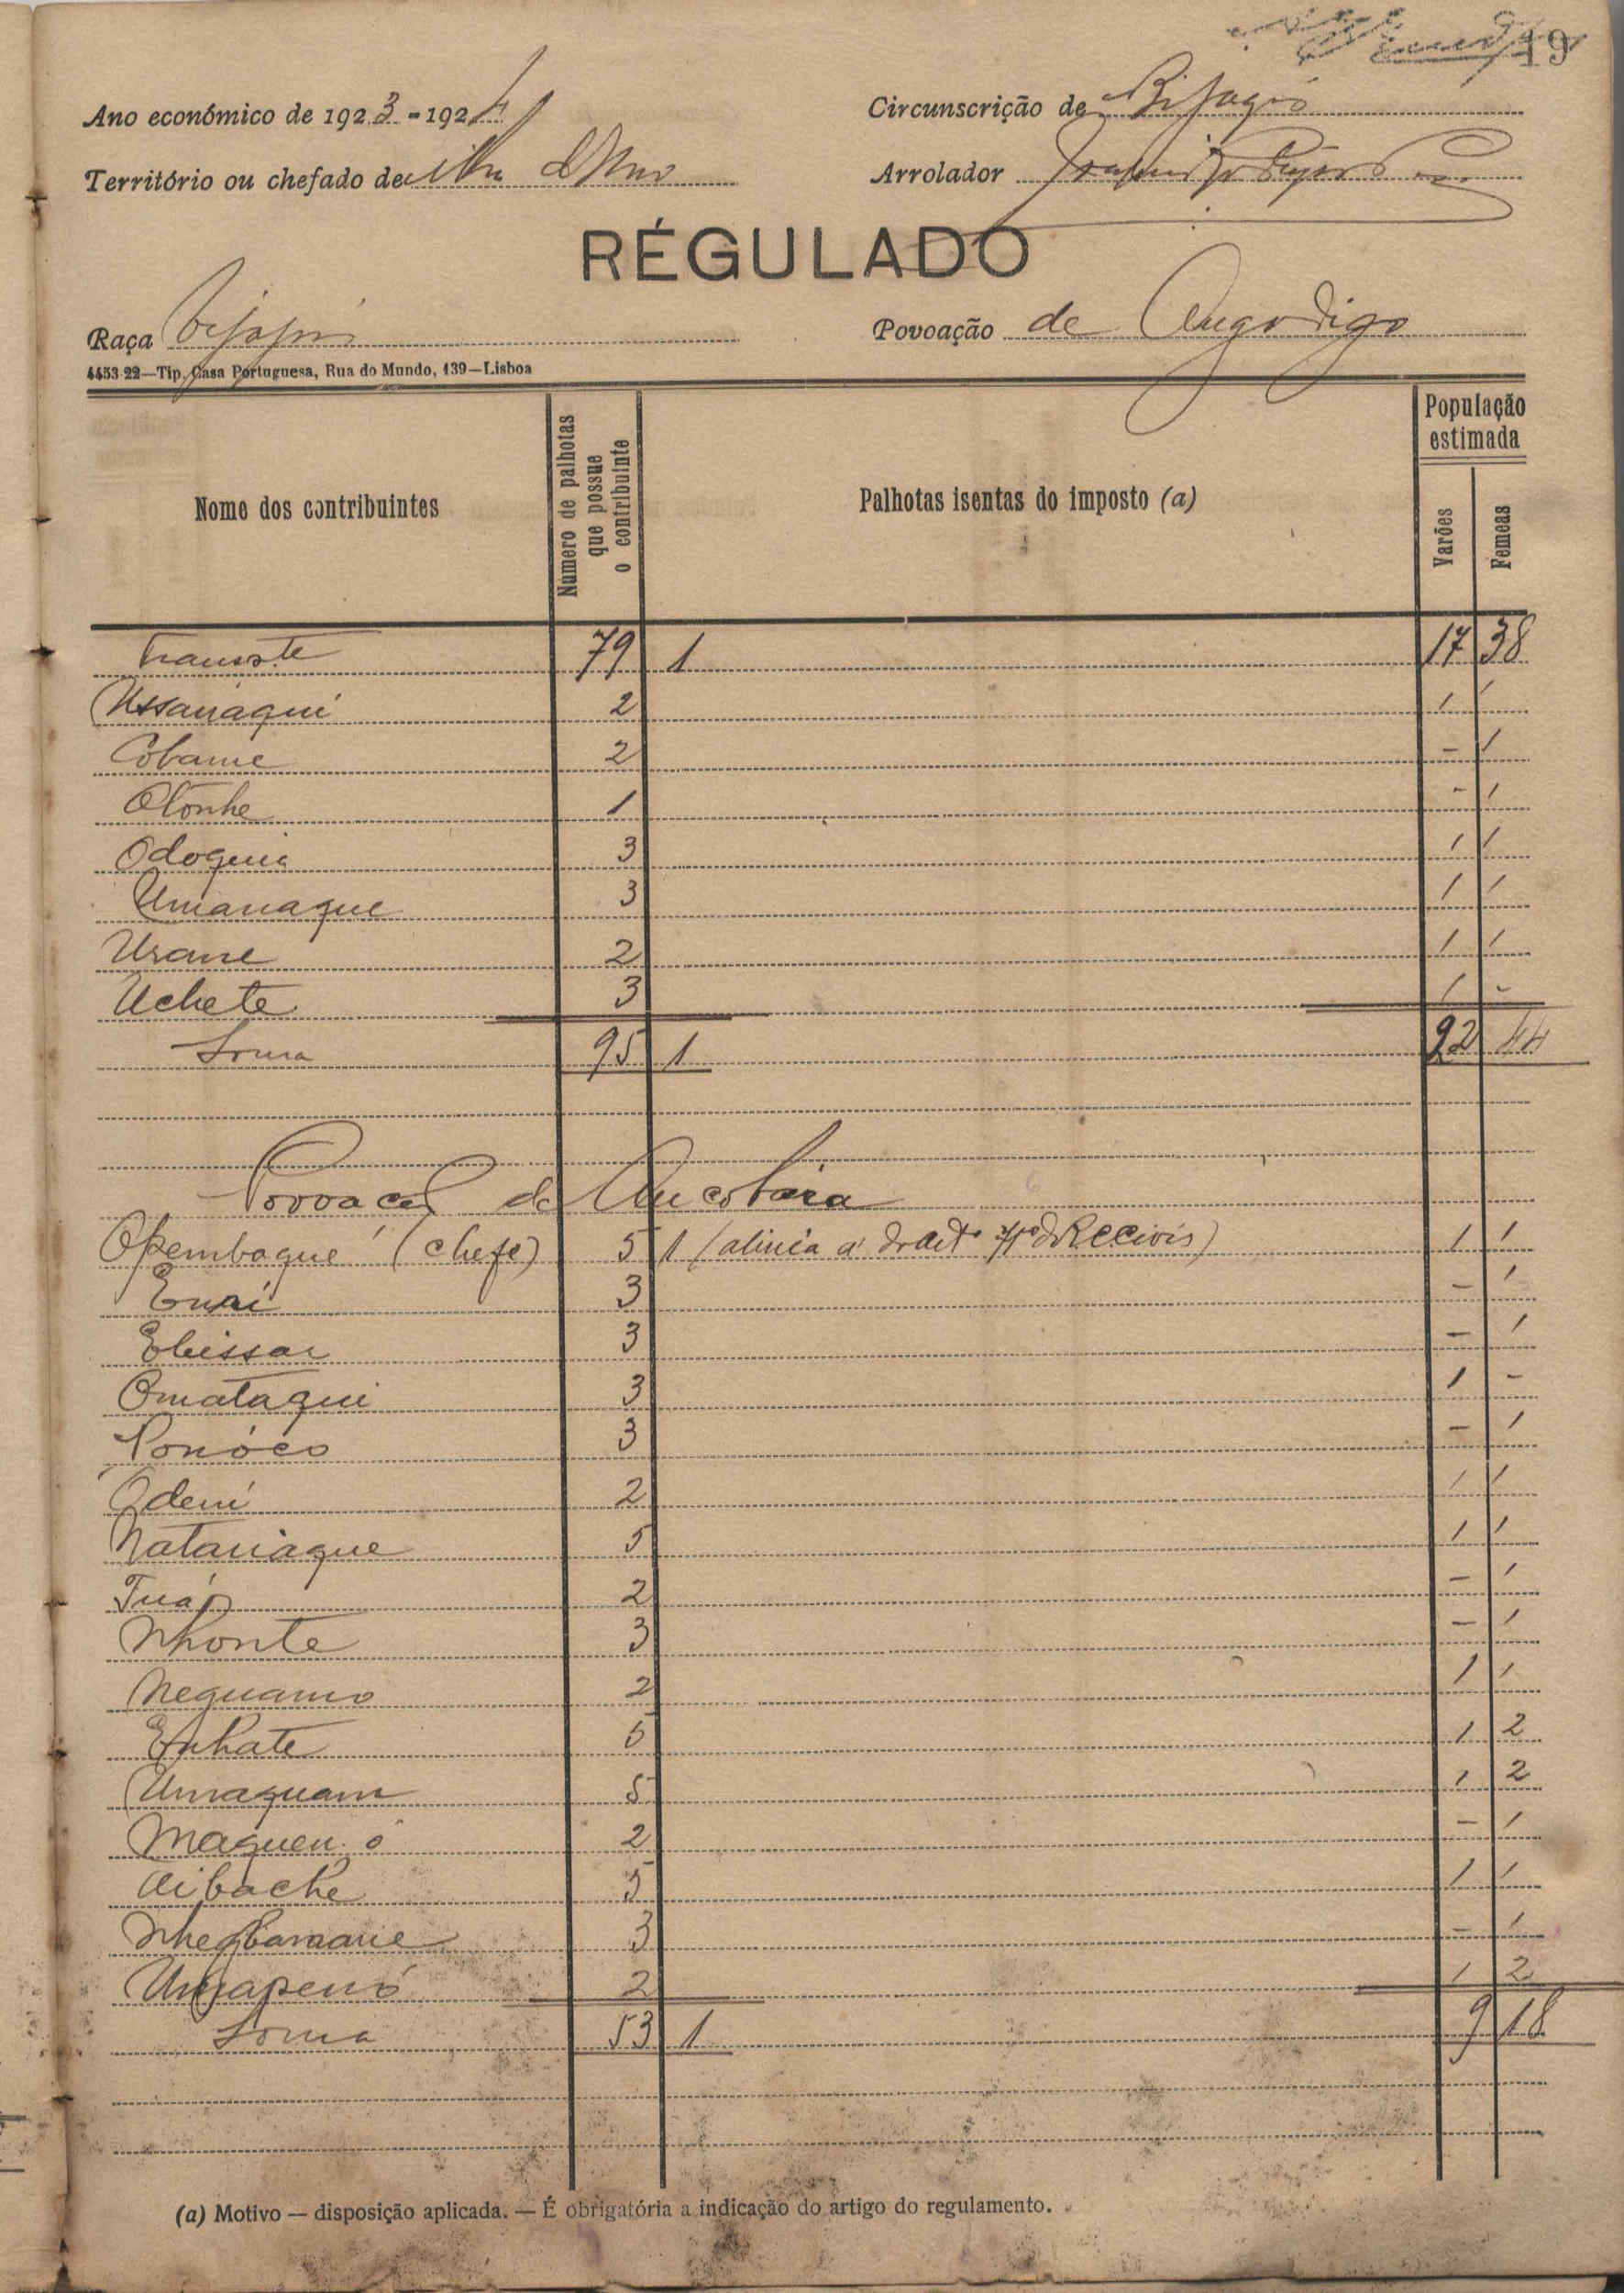 19
Ano económico de 1923-1924
Circunscrição de Bijagós
Território ou chefado de ilha
Arrolador
RÉGULADO
Raça bijagós
Povoação de Angodigo
4453-22—Tip. Casa Portuguesa, Rua do Mundo, 139—Lisboa
Nome dos contribuintes
Numero de palhotas que possue o contribuinte
Palhotas isentas do imposto (a)
População estimada
Varões
Femeas
Transpte 79 1 17 38
Ussanáqui 2 1 1
Cobame 2 - 1
Otonhe 1 - 1
Odoquia 3 1 1
Umanaque 3 1 1
Urane 2 1 1
Uchete 3 1 -
Soma 95 1 22 44
Povoação de Ancobara
Opembaque (chefe) 5 1 1 1
Enai 3 - 1
Ebissar 3 - 1
Omataqui 3 1 -
Ponóco 3 - 1
Odení 2 1 1
Nataniaque 5 1 1
2 - 1
Nhonte 3 - 1
Nequamo 2 1 1
Enhate 5 1 2
Umaquam 5 1 2
Maquen ó 2 - 1
Aibache 5 1 1
3 - 1
2 1 2
Soma 53 1 9 18
(a) Motivo — disposição aplicada. — É obrigatória a indicação do artigo do regulamento.